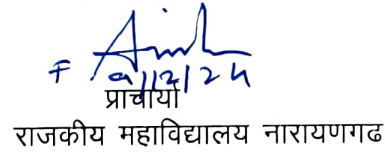 9/12/24
प्राचार्या
राजकीय महाविद्यालय नारायणगढ